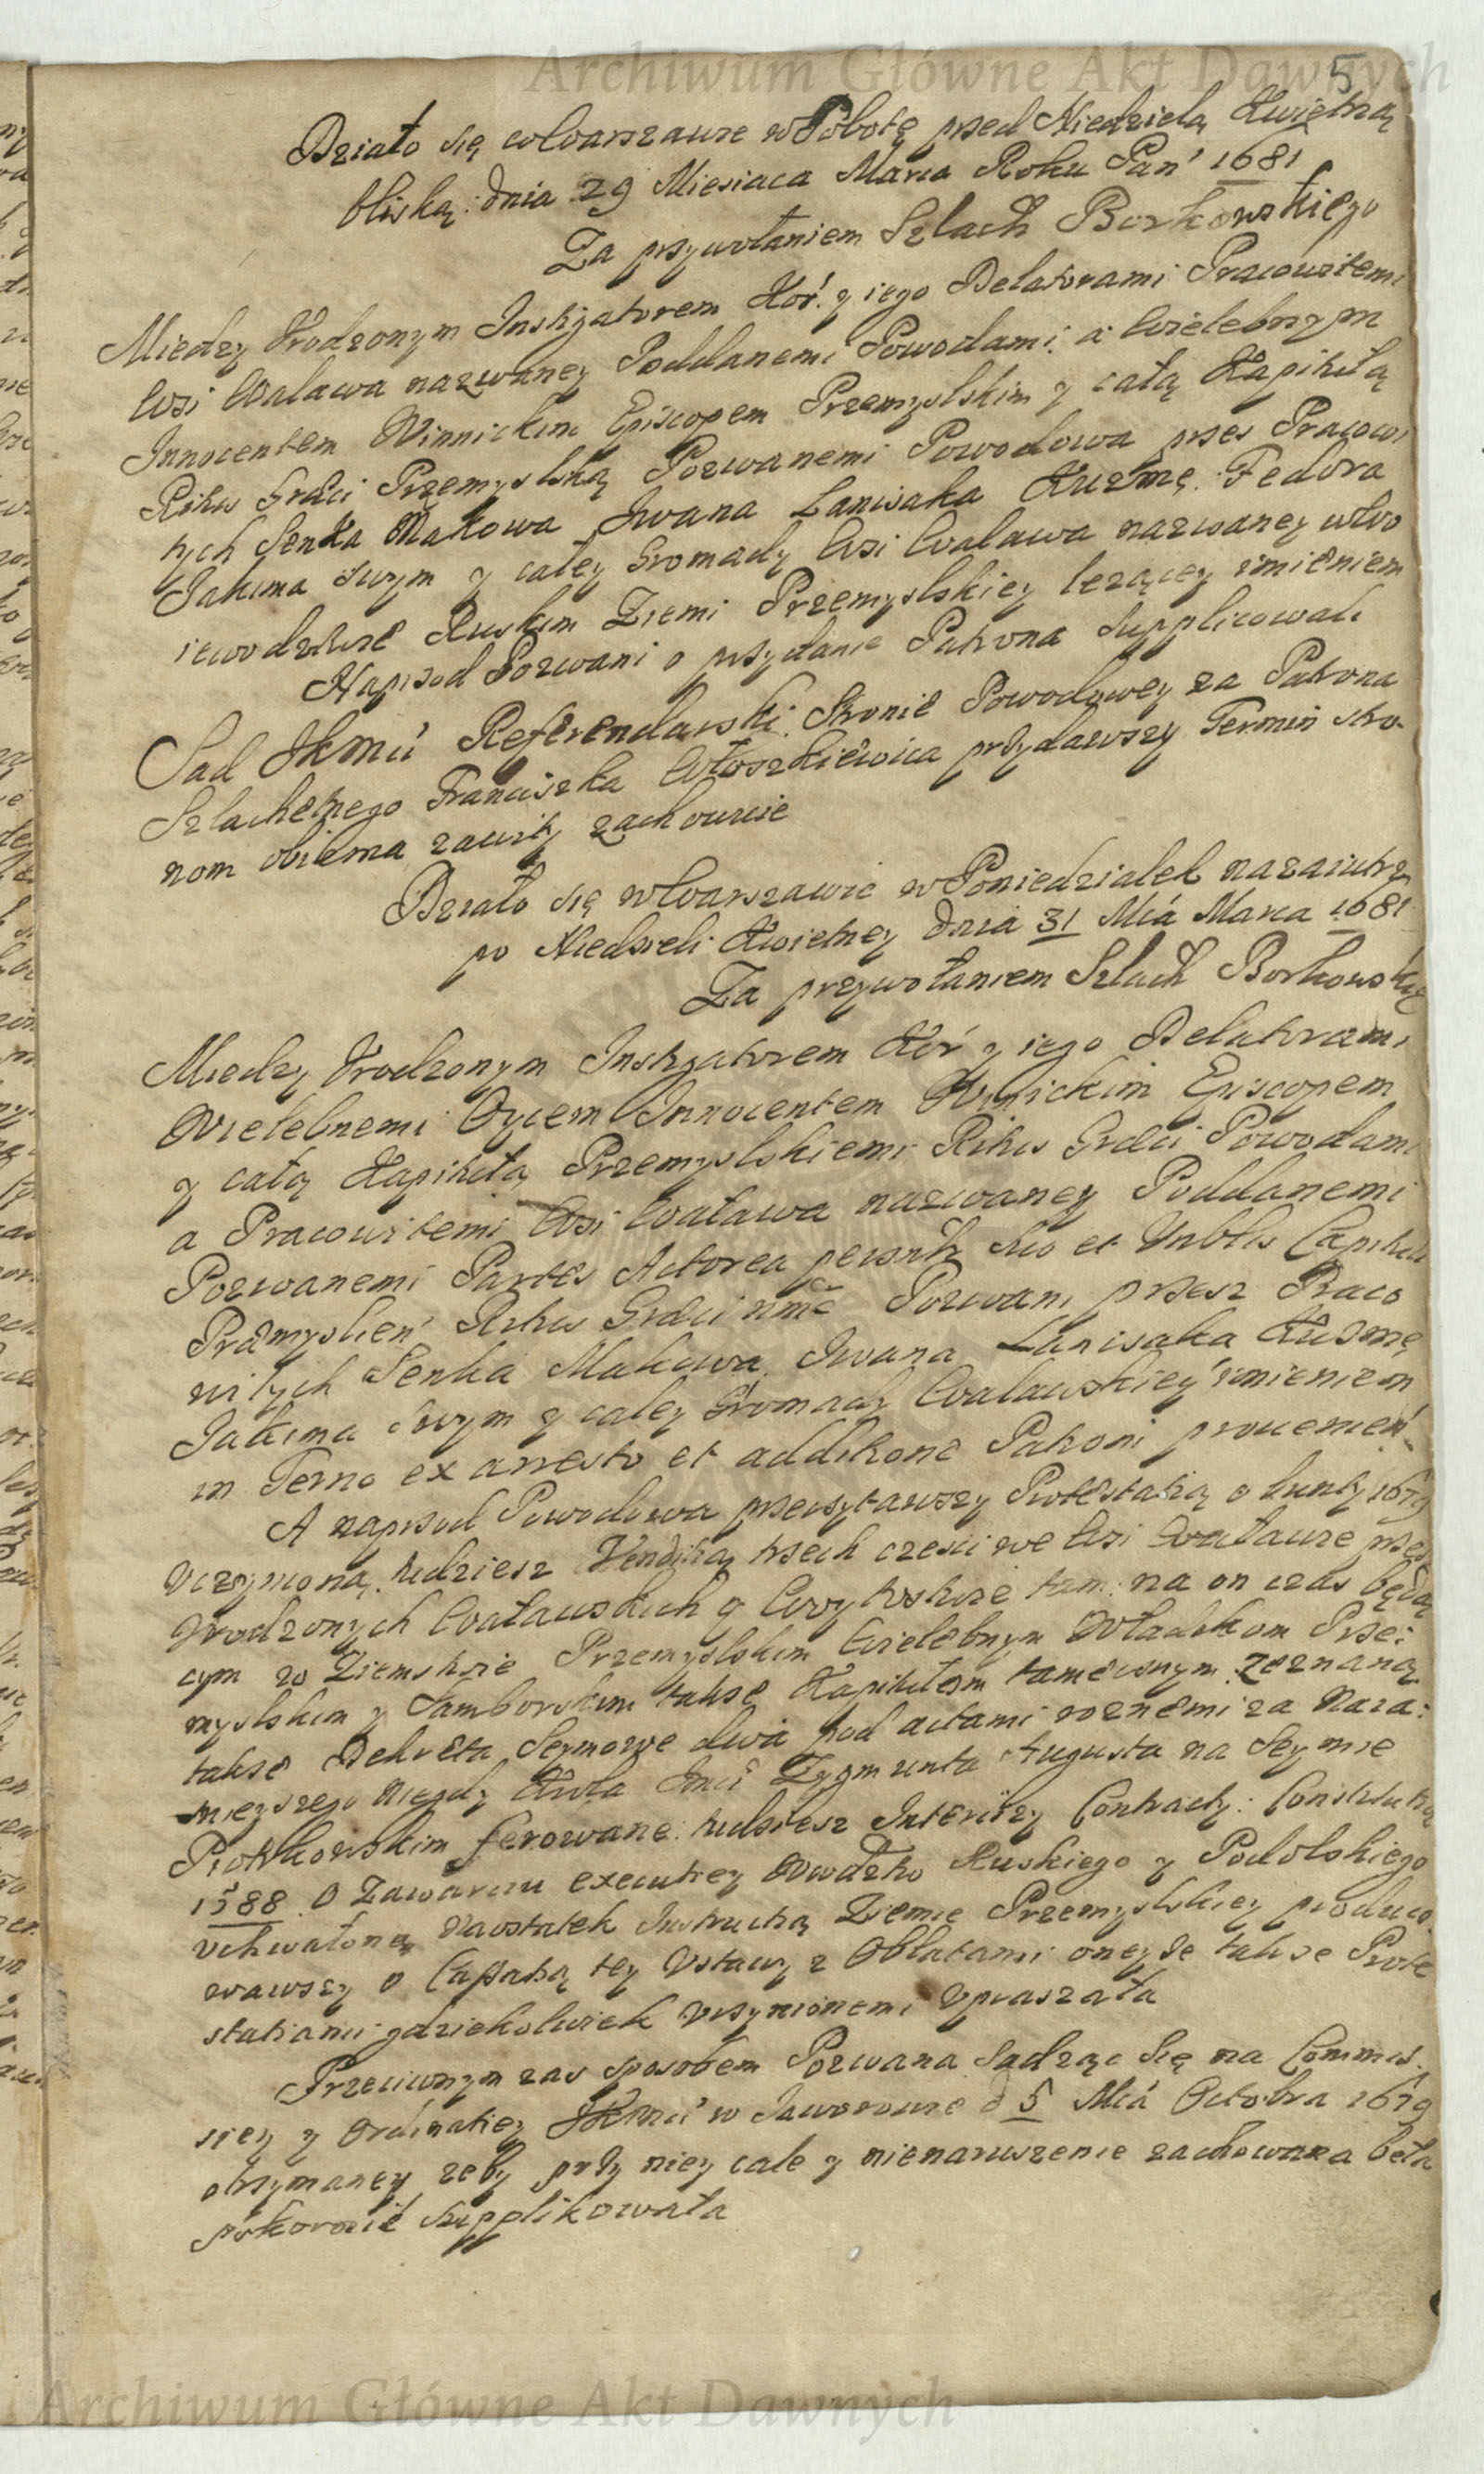 Archiwum Główne Akt Dawnych
5
Działo się w Warszawie w Sobotę przed Niedzielą Kwietną
bliską: dnia 29 Miesiaca Marca Roku Pan' 1681
Za przywołaniem Szlach Borkowskiego
Miedzy Urodzonym Instigatorem Kor. y iego Delatorami Pracowitemi
Wsi Walawa nazwaney Poddanemi Powodami: a Wielebnym
Innocentem Winnickim Episcopem Przemyslskim y całą Kapitułą
Ritus Graeci Przemyslską Pozwanemi Powodowa przez Pracowi
tych Senka Makowa Iwana Lanisaka Kuzmę Fedora
Jakima swym y całey Gromady Wsi Walawa nazwaney w Wo
iewodztwie Ruskim Ziemi Przemyslskiey lezącey imieniem
Naprzod Pozwani o przydanie Patrona supplicowali
Sad JKMci Referendarski Stronie Powodowey za Patrona
Szlachetnego Franciszka Włoszkiewica przydawszy Termin stro-
nom obiema zawity zachowuie
Działo się w Warszawie w Poniedziałek nazaiutrz
po Niedzieli Kwietney dnia 31 Mca Marca 1681
Za przywołaniem Szlach Borkowskie
Miedzy Urodzonym Instigatorem Kor y iego Delatorami
Wielebnemi Oycem Innocentem Winickim Episcopem
y całą Kapitułą Przemyslskiemi Ritus Graeci Powodami
a Pracowitemi Wsi Waława nazwaney Poddanemi
Pozwanemi Partes Actorea suo et Capituli
Praemyslien' Ritus Graeci Pozwani przez Praco
witych Senka Makowa Iwana Lanisaka Kuzmę
Jakima swym y całey Gromady Walawskiey imieniem
in Termo ex arresto et additione Patroni provenien'
A naprzod Powodowa przeczytawszy Protestatią o bunty 1679
uczynioną tudziesz trzech czesci we Wsi Waławie przez
Urodzonych Waławskich y Woytostwie tam na on czas będą
cym w Ziemstwie Przemyslskim Wielebnym Władykom Prze:
myslskim y Samborskim takze Kapitułom tamecznym zeznaną
takze Dekreta Seymowe dwa pod actami roznemi za Naia:
snieyszego niegdy Krola Jmci Zygmunta Augusta na Seymie
Piotrkowskim ferowane: tudziesz Intercyzy Contracty: Constitutią
1588 o Zawarciu executiey Wwdztw Ruskiego y Podolskiego
uchwaloną Naostatek Instructią Ziemie Przemyslskiey produco
wawszy o Cassatią tey Ustawy z Oblatami oneyze takze Prote
stationi gdziekolwiek uczynionemi upraszała
Przeciwnym zas sposobem Pozwana sadząc się na Commis
siey y Ordinatiey JKMci w Jaworowie d 5 Mca Octobra 1679
otrzymaney zeby przy niey cale y nienaruszenie zachowana beła
pokornie supplikowała
Archiwum Główne Akt Dawnych